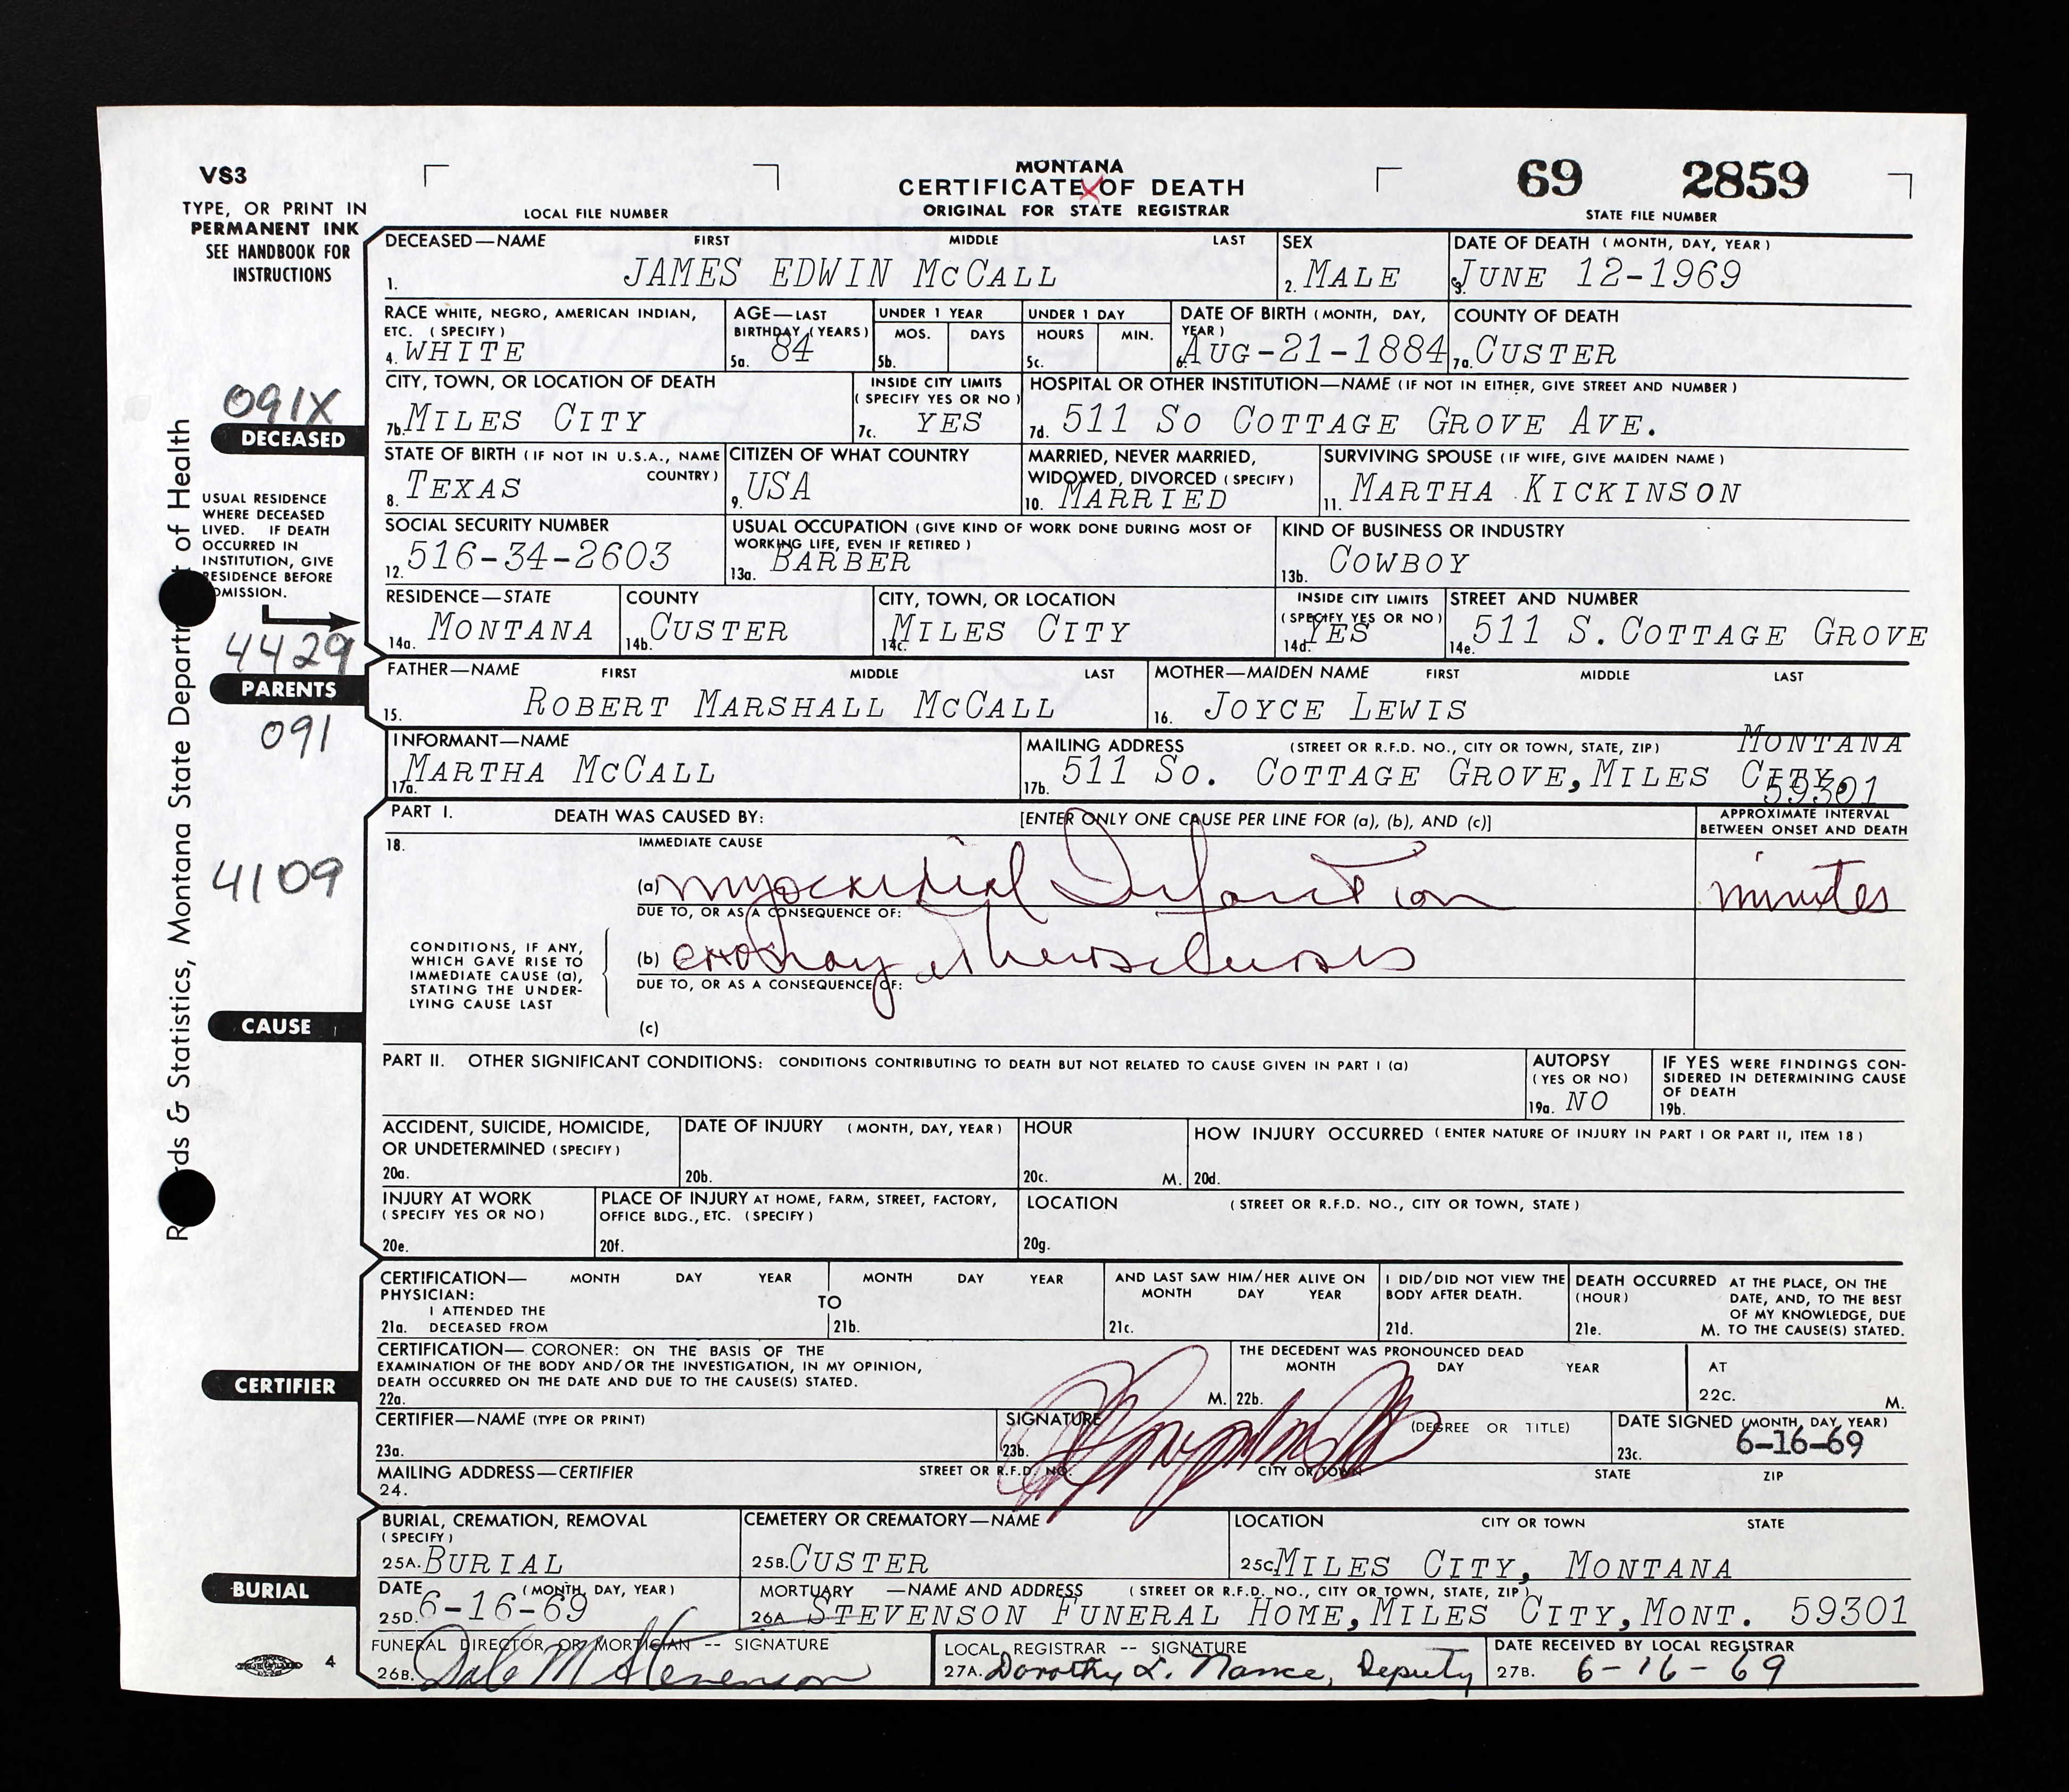 VS3
MONTANA
CERTIFICATE OF DEATH
ORIGINAL FOR STATE REGISTRAR
69 2859
TYPE, OR PRINT IN
PERMANENT INK
SEE HANDBOOK FOR
INSTRUCTIONS
LOCAL FILE NUMBER
STATE FILE NUMBER
DECEASED—NAME FIRST MIDDLE LAST
1. JAMES EDWIN McCALL
SEX
2. MALE
DATE OF DEATH (MONTH, DAY, YEAR)
3. JUNE 12-1969
RACE WHITE, NEGRO, AMERICAN INDIAN,
ETC. (SPECIFY)
4. WHITE
AGE—LAST
BIRTHDAY (YEARS)
5a. 84
UNDER 1 YEAR
MOS. DAYS
5b.
UNDER 1 DAY
HOURS MIN.
5c.
DATE OF BIRTH (MONTH, DAY,
YEAR)
6. AUG-21-1884
COUNTY OF DEATH
7a. CUSTER
CITY, TOWN, OR LOCATION OF DEATH
7b. MILES CITY
INSIDE CITY LIMITS
(SPECIFY YES OR NO)
7c. YES
HOSPITAL OR OTHER INSTITUTION—NAME (IF NOT IN EITHER, GIVE STREET AND NUMBER)
7d. 511 SO COTTAGE GROVE AVE.
091X
DECEASED
STATE OF BIRTH (IF NOT IN U.S.A., NAME
COUNTRY)
8. TEXAS
CITIZEN OF WHAT COUNTRY
9. USA
MARRIED, NEVER MARRIED,
WIDOWED, DIVORCED (SPECIFY)
10. MARRIED
SURVIVING SPOUSE (IF WIFE, GIVE MAIDEN NAME)
11. MARTHA KICKINSON
USUAL RESIDENCE
WHERE DECEASED
LIVED. IF DEATH
OCCURRED IN
INSTITUTION, GIVE
RESIDENCE BEFORE
DMISSION.
SOCIAL SECURITY NUMBER
12. 516-34-2603
USUAL OCCUPATION (GIVE KIND OF WORK DONE DURING MOST OF
WORKING LIFE, EVEN IF RETIRED)
13a. BARBER
KIND OF BUSINESS OR INDUSTRY
13b. COWBOY
RESIDENCE—STATE
14a. MONTANA
COUNTY
14b. CUSTER
CITY, TOWN, OR LOCATION
14c. MILES CITY
INSIDE CITY LIMITS
(SPECIFY YES OR NO)
14d. YES
STREET AND NUMBER
14e. 511 S. COTTAGE GROVE
4429
PARENTS
091
FATHER—NAME FIRST MIDDLE LAST
15. ROBERT MARSHALL McCALL
MOTHER—MAIDEN NAME FIRST MIDDLE LAST
16. JOYCE LEWIS
INFORMANT—NAME
17a. MARTHA McCALL
MAILING ADDRESS (STREET OR R.F.D. NO., CITY OR TOWN, STATE, ZIP) MONTANA
17b. 511 SO. COTTAGE GROVE, MILES CITY,
59301
PART I. DEATH WAS CAUSED BY: [ENTER ONLY ONE CAUSE PER LINE FOR (a), (b), AND (c)]
APPROXIMATE INTERVAL
BETWEEN ONSET AND DEATH
18. IMMEDIATE CAUSE
4109
(a) myocardial Infarction minutes
DUE TO, OR AS A CONSEQUENCE OF:
CONDITIONS, IF ANY,
WHICH GAVE RISE TO
IMMEDIATE CAUSE (a),
STATING THE UNDER-
LYING CAUSE LAST
(b)
DUE TO, OR AS A CONSEQUENCE OF:
(c)
CAUSE
PART II. OTHER SIGNIFICANT CONDITIONS: CONDITIONS CONTRIBUTING TO DEATH BUT NOT RELATED TO CAUSE GIVEN IN PART I (a)
AUTOPSY
(YES OR NO)
19a. NO
IF YES WERE FINDINGS CON-
SIDERED IN DETERMINING CAUSE
OF DEATH
19b.
ACCIDENT, SUICIDE, HOMICIDE,
OR UNDETERMINED (SPECIFY)
20a.
DATE OF INJURY (MONTH, DAY, YEAR)
20b.
HOUR
20c. M.
HOW INJURY OCCURRED (ENTER NATURE OF INJURY IN PART I OR PART II, ITEM 18)
20d.
INJURY AT WORK
(SPECIFY YES OR NO)
20e.
PLACE OF INJURY AT HOME, FARM, STREET, FACTORY,
OFFICE BLDG., ETC. (SPECIFY)
20f.
LOCATION (STREET OR R.F.D. NO., CITY OR TOWN, STATE)
20g.
CERTIFICATION— MONTH DAY YEAR
PHYSICIAN:
I ATTENDED THE
21a. DECEASED FROM
TO
MONTH DAY YEAR
21b.
AND LAST SAW HIM/HER ALIVE ON
MONTH DAY YEAR
21c.
I DID/DID NOT VIEW THE
BODY AFTER DEATH.
21d.
DEATH OCCURRED AT THE PLACE, ON THE
(HOUR) DATE, AND, TO THE BEST
OF MY KNOWLEDGE, DUE
21e. M. TO THE CAUSE(S) STATED.
CERTIFICATION— CORONER: ON THE BASIS OF THE
EXAMINATION OF THE BODY AND/OR THE INVESTIGATION, IN MY OPINION,
DEATH OCCURRED ON THE DATE AND DUE TO THE CAUSE(S) STATED.
22a. M.
THE DECEDENT WAS PRONOUNCED DEAD
MONTH DAY YEAR
22b.
AT
22c. M.
CERTIFIER
CERTIFIER—NAME (TYPE OR PRINT)
23a.
SIGNATURE (DEGREE OR TITLE)
23b.
DATE SIGNED (MONTH, DAY, YEAR)
23c. 6-16-69
MAILING ADDRESS—CERTIFIER STREET OR R.F.D. NO. CITY OR TOWN STATE ZIP
24.
BURIAL, CREMATION, REMOVAL
(SPECIFY)
25A. BURIAL
CEMETERY OR CREMATORY—NAME
25B. CUSTER
LOCATION CITY OR TOWN STATE
25C MILES CITY, MONTANA
BURIAL
DATE (MONTH, DAY, YEAR)
25D. 6-16-69
MORTUARY —NAME AND ADDRESS (STREET OR R.F.D. NO., CITY OR TOWN, STATE, ZIP)
26A STEVENSON FUNERAL HOME, MILES CITY, MONT. 59301
FUNERAL DIRECTOR OR MORTICIAN -- SIGNATURE
26B. Dale M Stevenson
LOCAL REGISTRAR -- SIGNATURE
27A. Dorothy L. Nance, Deputy
DATE RECEIVED BY LOCAL REGISTRAR
27B. 6-16-69
4
R rds & Statistics, Montana State Departm t of Health